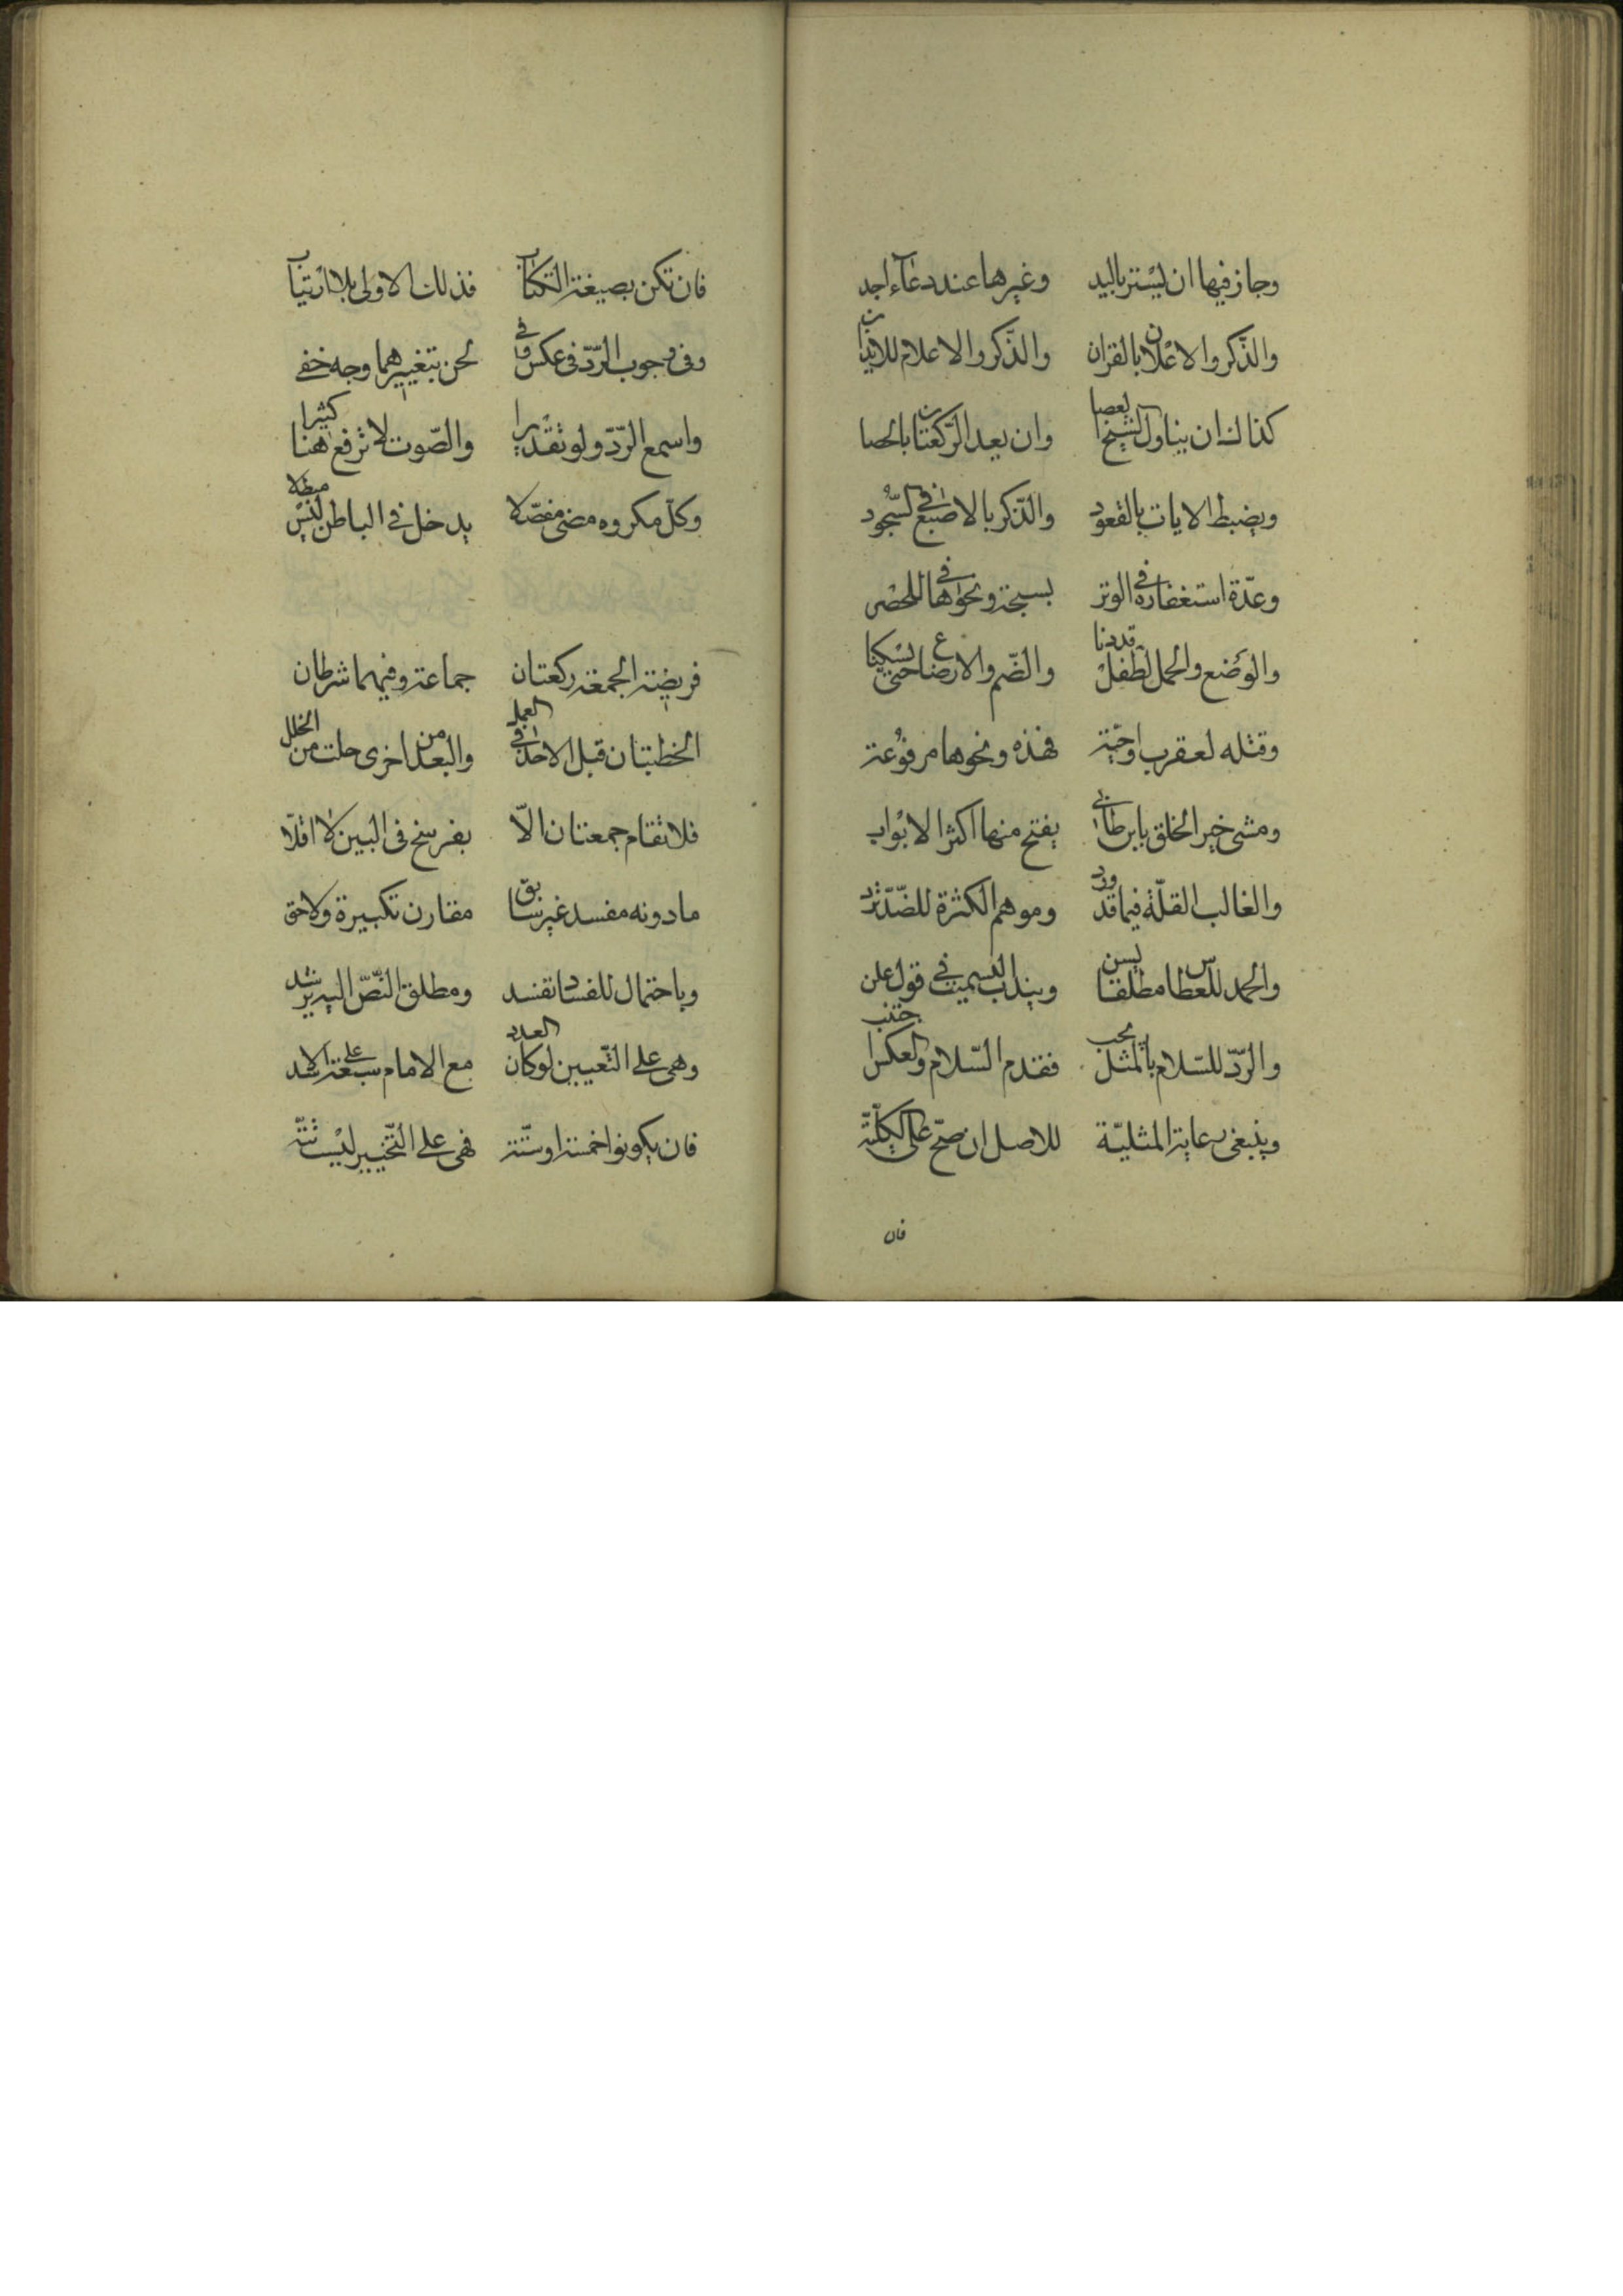 وجاز فيها ان يستر باليد وغيرها عند دعاء اجد
والذّكر والاعلان بالقران والذّكر والاعلام للايذان
كذاك ان يناول الشيخ العصا وان يعد الركعتان بالحصا
ويضبط الايات بالقعود والذّكر بالاصبع في السّجود
وعدّة استغفاره في الوتر بسبحة ونحوها في الحصر
والوضع والحمل لطفل قددنا والضّم والارضاع حتى يسكنا
وقتله لعقرب او حيّة فهذه ونحوها مرفوعة
ومشى خير الخلق بابن طاب يفتح منها اكثر الابواب
والغالب القلّة فيما قد ورد وموهم الكثرة للضّدّ ترد
والحمد للعطاس مطلقا يسن ويندب التسميت في قول علن
والرّدّ للسّلام بالمثل يجب فقدم السّلام والعكس اجتنب
وينبغى رعاية المثليّة للاصل ان صحّ على الكلّيّة
فان
فان تكن بصيغة الكتاب فذلك الاولى بلا ارتياب
وفى وجوب الرّدّ فى عكس وفي لحن بتغييرهما وجه خفي
واسمع الرّدّ ولو تقديرا والصّوت لا ترفع هنا كثيرا
وكلّ مكروه مضى مفصّلا يدخل في الباطن ليس مبطلا
فريضة الجمعة ركعتان جماعة وفيهما شرطان
الخطبتان قبل الاخذ في العمل والبعد من اخرى حلت من الخلل
فلا تقام جمعتان الّا بفرسخ فى البين لا اقلّا
ما دونه مفسد غير سابق مقارن تكبيرة ولاحق
وباحتمال للفساد تفسد ومطلق النّصّ اليه يرشد
وهى على التّعيين لو كان العدد مع الامام سبعة على الاسد
فان يكونوا خمسة او ستّة فهى على التّخيير ليست بتّة